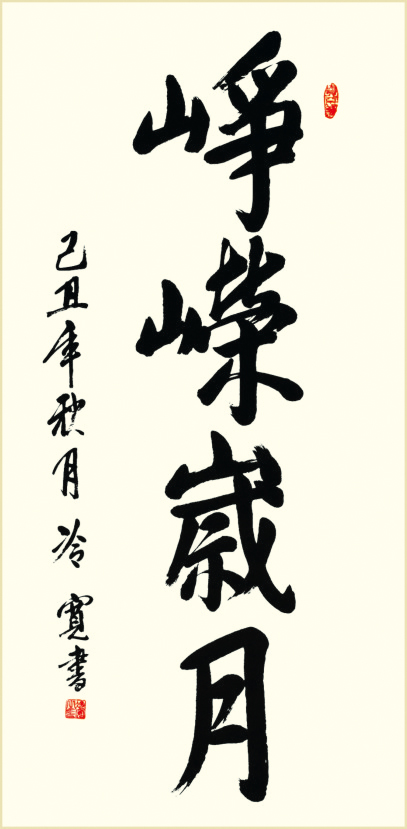 峥嵘歲月
己丑年秋月 冷寬書